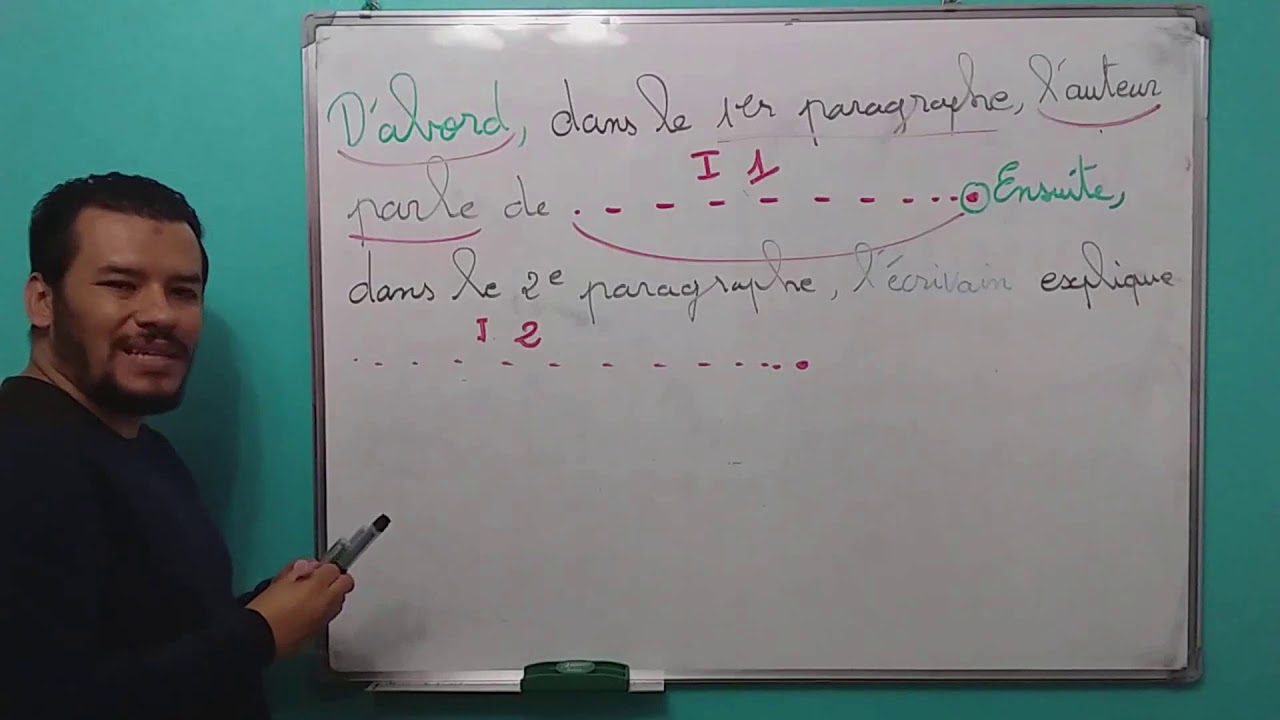 D'abord, dans le 1er paragraphe, l'auteur
I 1
parle de . - - - - - - - ... Ensuite,
dans le 2e paragraphe, l'écrivain explique
I. 2
. . - - - - - - - - ...